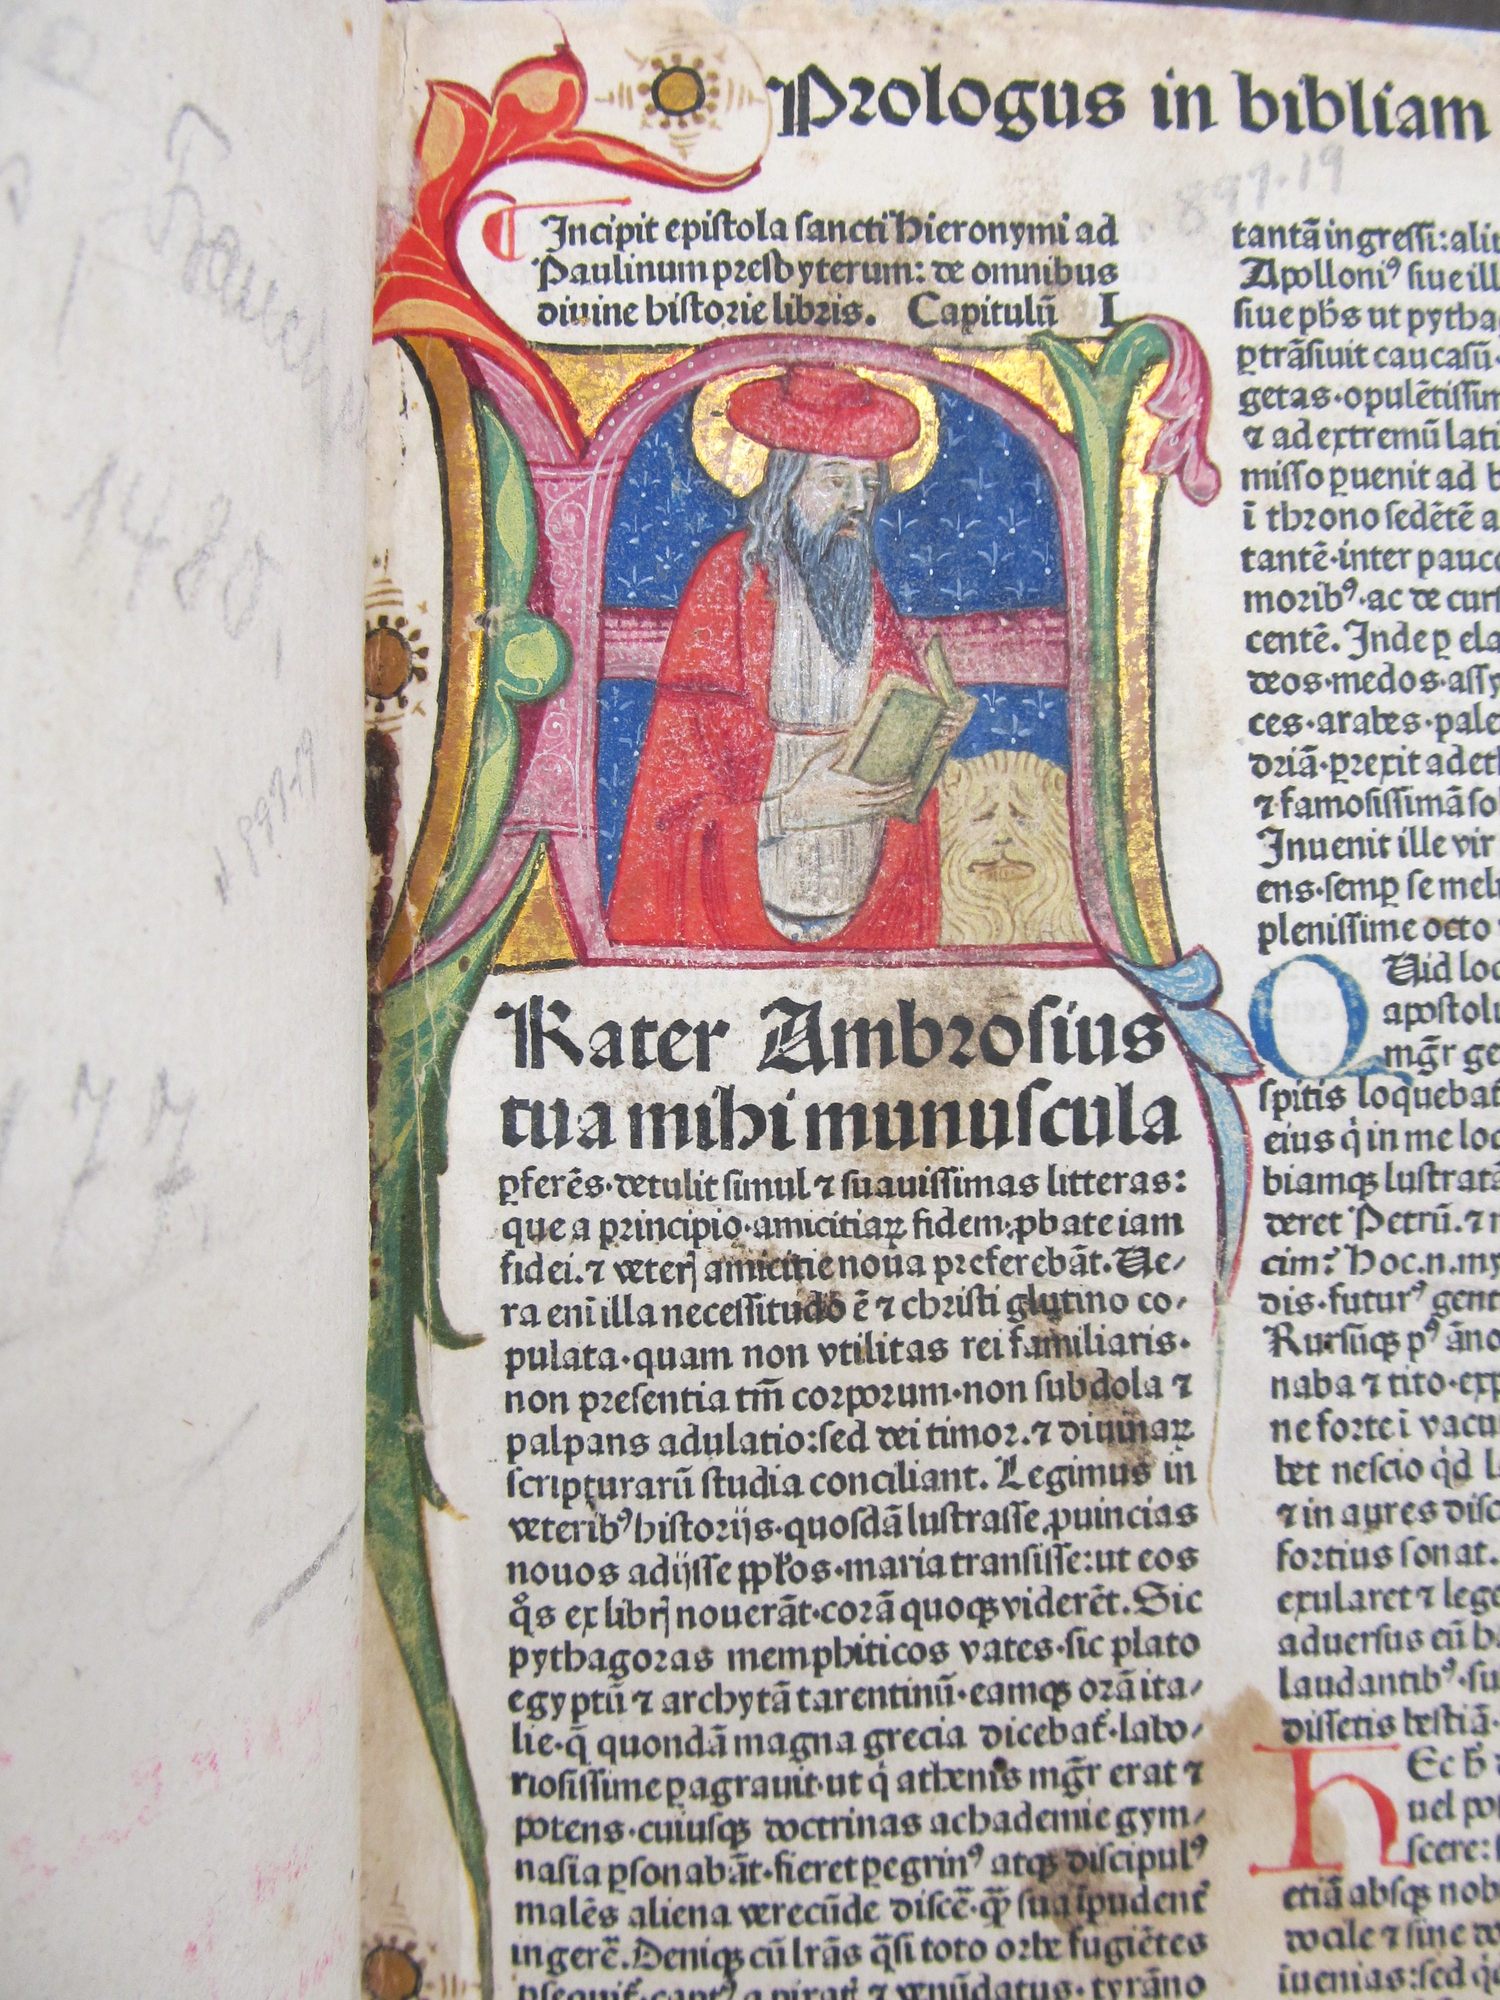 Prologus in bibliam
897.19
Incipit epistola sancti Hieronymi ad
Paulinum presbyterum: de omnibus
divine historie libris. Capitulū I
Rater Ambrosius
tua mihi munuscula
ꝑferēs·detulit simul ⁊ suauissimas litteras:
que a principio·amicitiaꝝ fidem·ꝓbate iam
fidei.⁊ veterꝭ amicitie noua preferebāt. Ue-
ra eni illa necessitudo ē ⁊ christi glutino co-
pulata·quam non vtilitas rei familiaris·
non presentia tm̄ corporum·non subdola ⁊
palpans adulatio:sed dei timor.⁊ diuinaꝝ
scripturarū studia conciliant. Legimus in
veteribꝰ historijs·quosdā lustrasse ꝓuincias
nouos adijsse ppl'os·maria transisse:ut eos
q̊s ex librꝭ nouerāt·corā quoqꝫ viderēt. Sic
pythagoras memphiticos vates·sic plato
egyptū ⁊ archytā tarentinū·eamqꝫ orā ita-
lie·q̄ quondā magna grecia dicebat᷑·labo-
riosissime ꝑagrauit·ut q̇ athenis mḡr erat ⁊
potens·cuiusqꝫ doctrinas achademie gym-
nasia ꝑsonabāt·fieret ꝑegrinꝰ atqꝫ discipulꝰ
malēs aliena verecūde discē·q̄ꝫ sua īpudent᷑
ingerē. Deniqꝫ cū lr̄as q̄si toto orbe fugiētes
tantā ingressi:
Apolloniꝰ siue
siue ph̄s ut
ꝑtrāsiuit caucasū·
getas·
⁊ ad extremū
misso ꝑuenit ad
ī throno sedētē
tantē·inter
moribꝰ·ac de
centē. Inde ꝑ
deos·medos·
ces·arabes·
driā·ꝑrexit
⁊ famosissimā
Inuenit ille vir
ens·semꝑ se
plenissime octo
Uid
mḡr
spitis
eius q̇ in me
biamqꝫ
deret Petrū.⁊
cim? Hoc.n.
dis·futurꝰ
Rursūqꝫ pꝰ
naba ⁊ tito·
ne forte ī
bet nescio q̇d
⁊ in aures
fortius sonat.
exularet ⁊
aduersus eū
laudantibꝰ·
disseris bestiā·
Ec
uel
scere:
etiā absqꝫ
docile ⁊ sine
iuenias:sed
1480